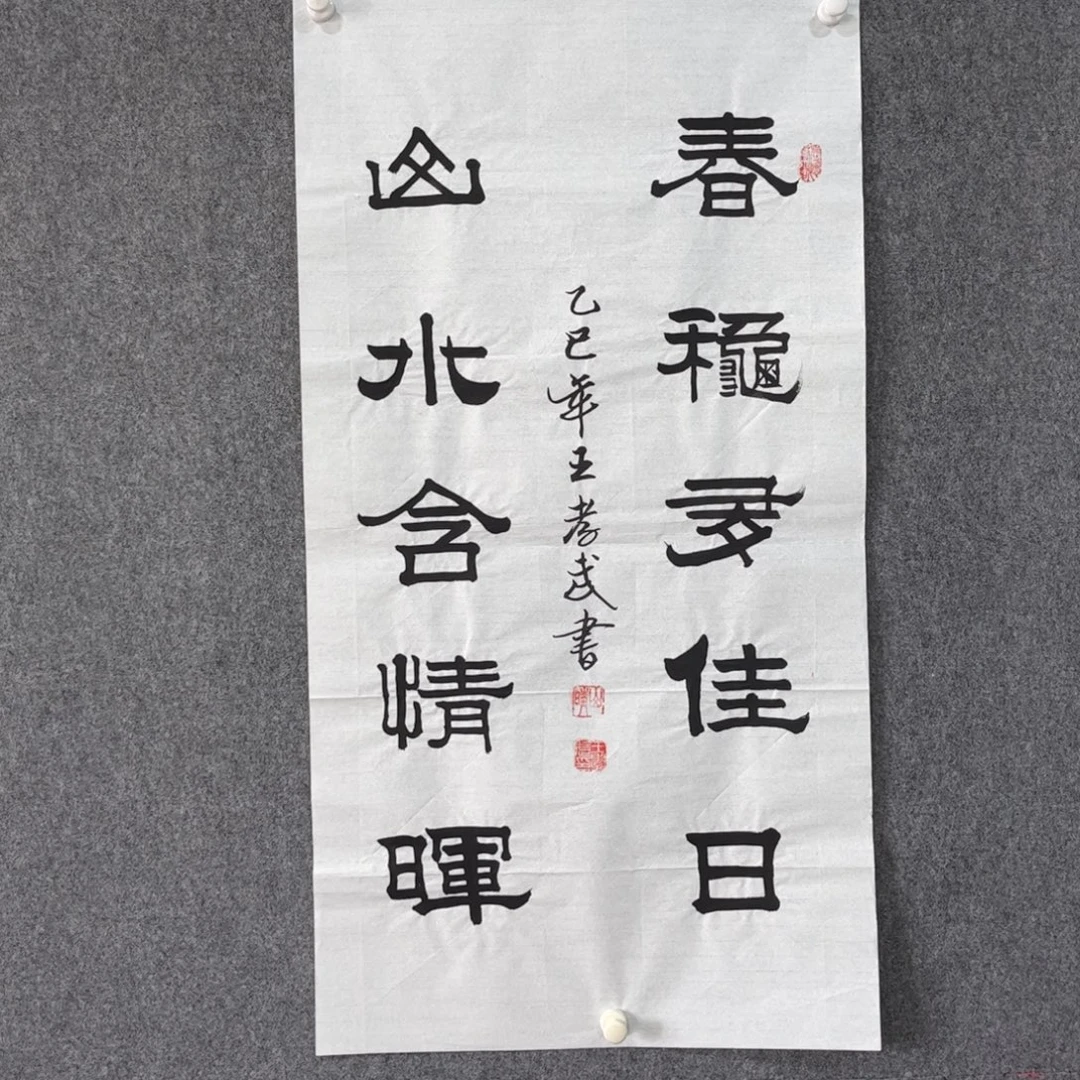 春龝多佳日
山水含情暉
乙巳年王孝武書